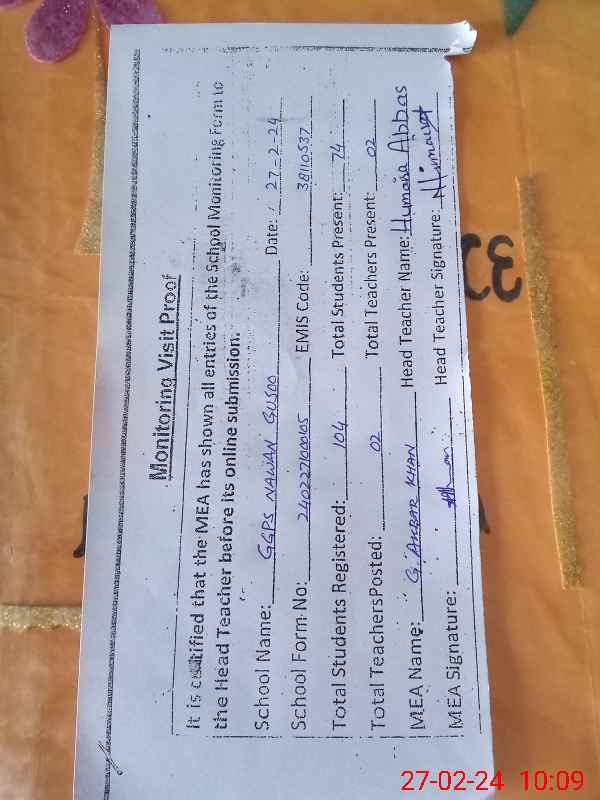 Monitoring Visit Proof
It is certified that the MEA has shown all entries of the School Monitoring Form to
the Head Teacher before its online submission.
School Name: GGPS NAWAN GUSOO Date: 27-2-24
School Form No: 240227100005 EMIS Code: 38110537
Total Students Registered: 104 Total Students Present: 74
Total TeachersPosted: 02 Total Teachers Present: 02
MEA Name: G. AKBAR KHAN Head Teacher Name: Humaira Abbas
MEA Signature: Head Teacher Signature: Humaira
27-02-24 10:09